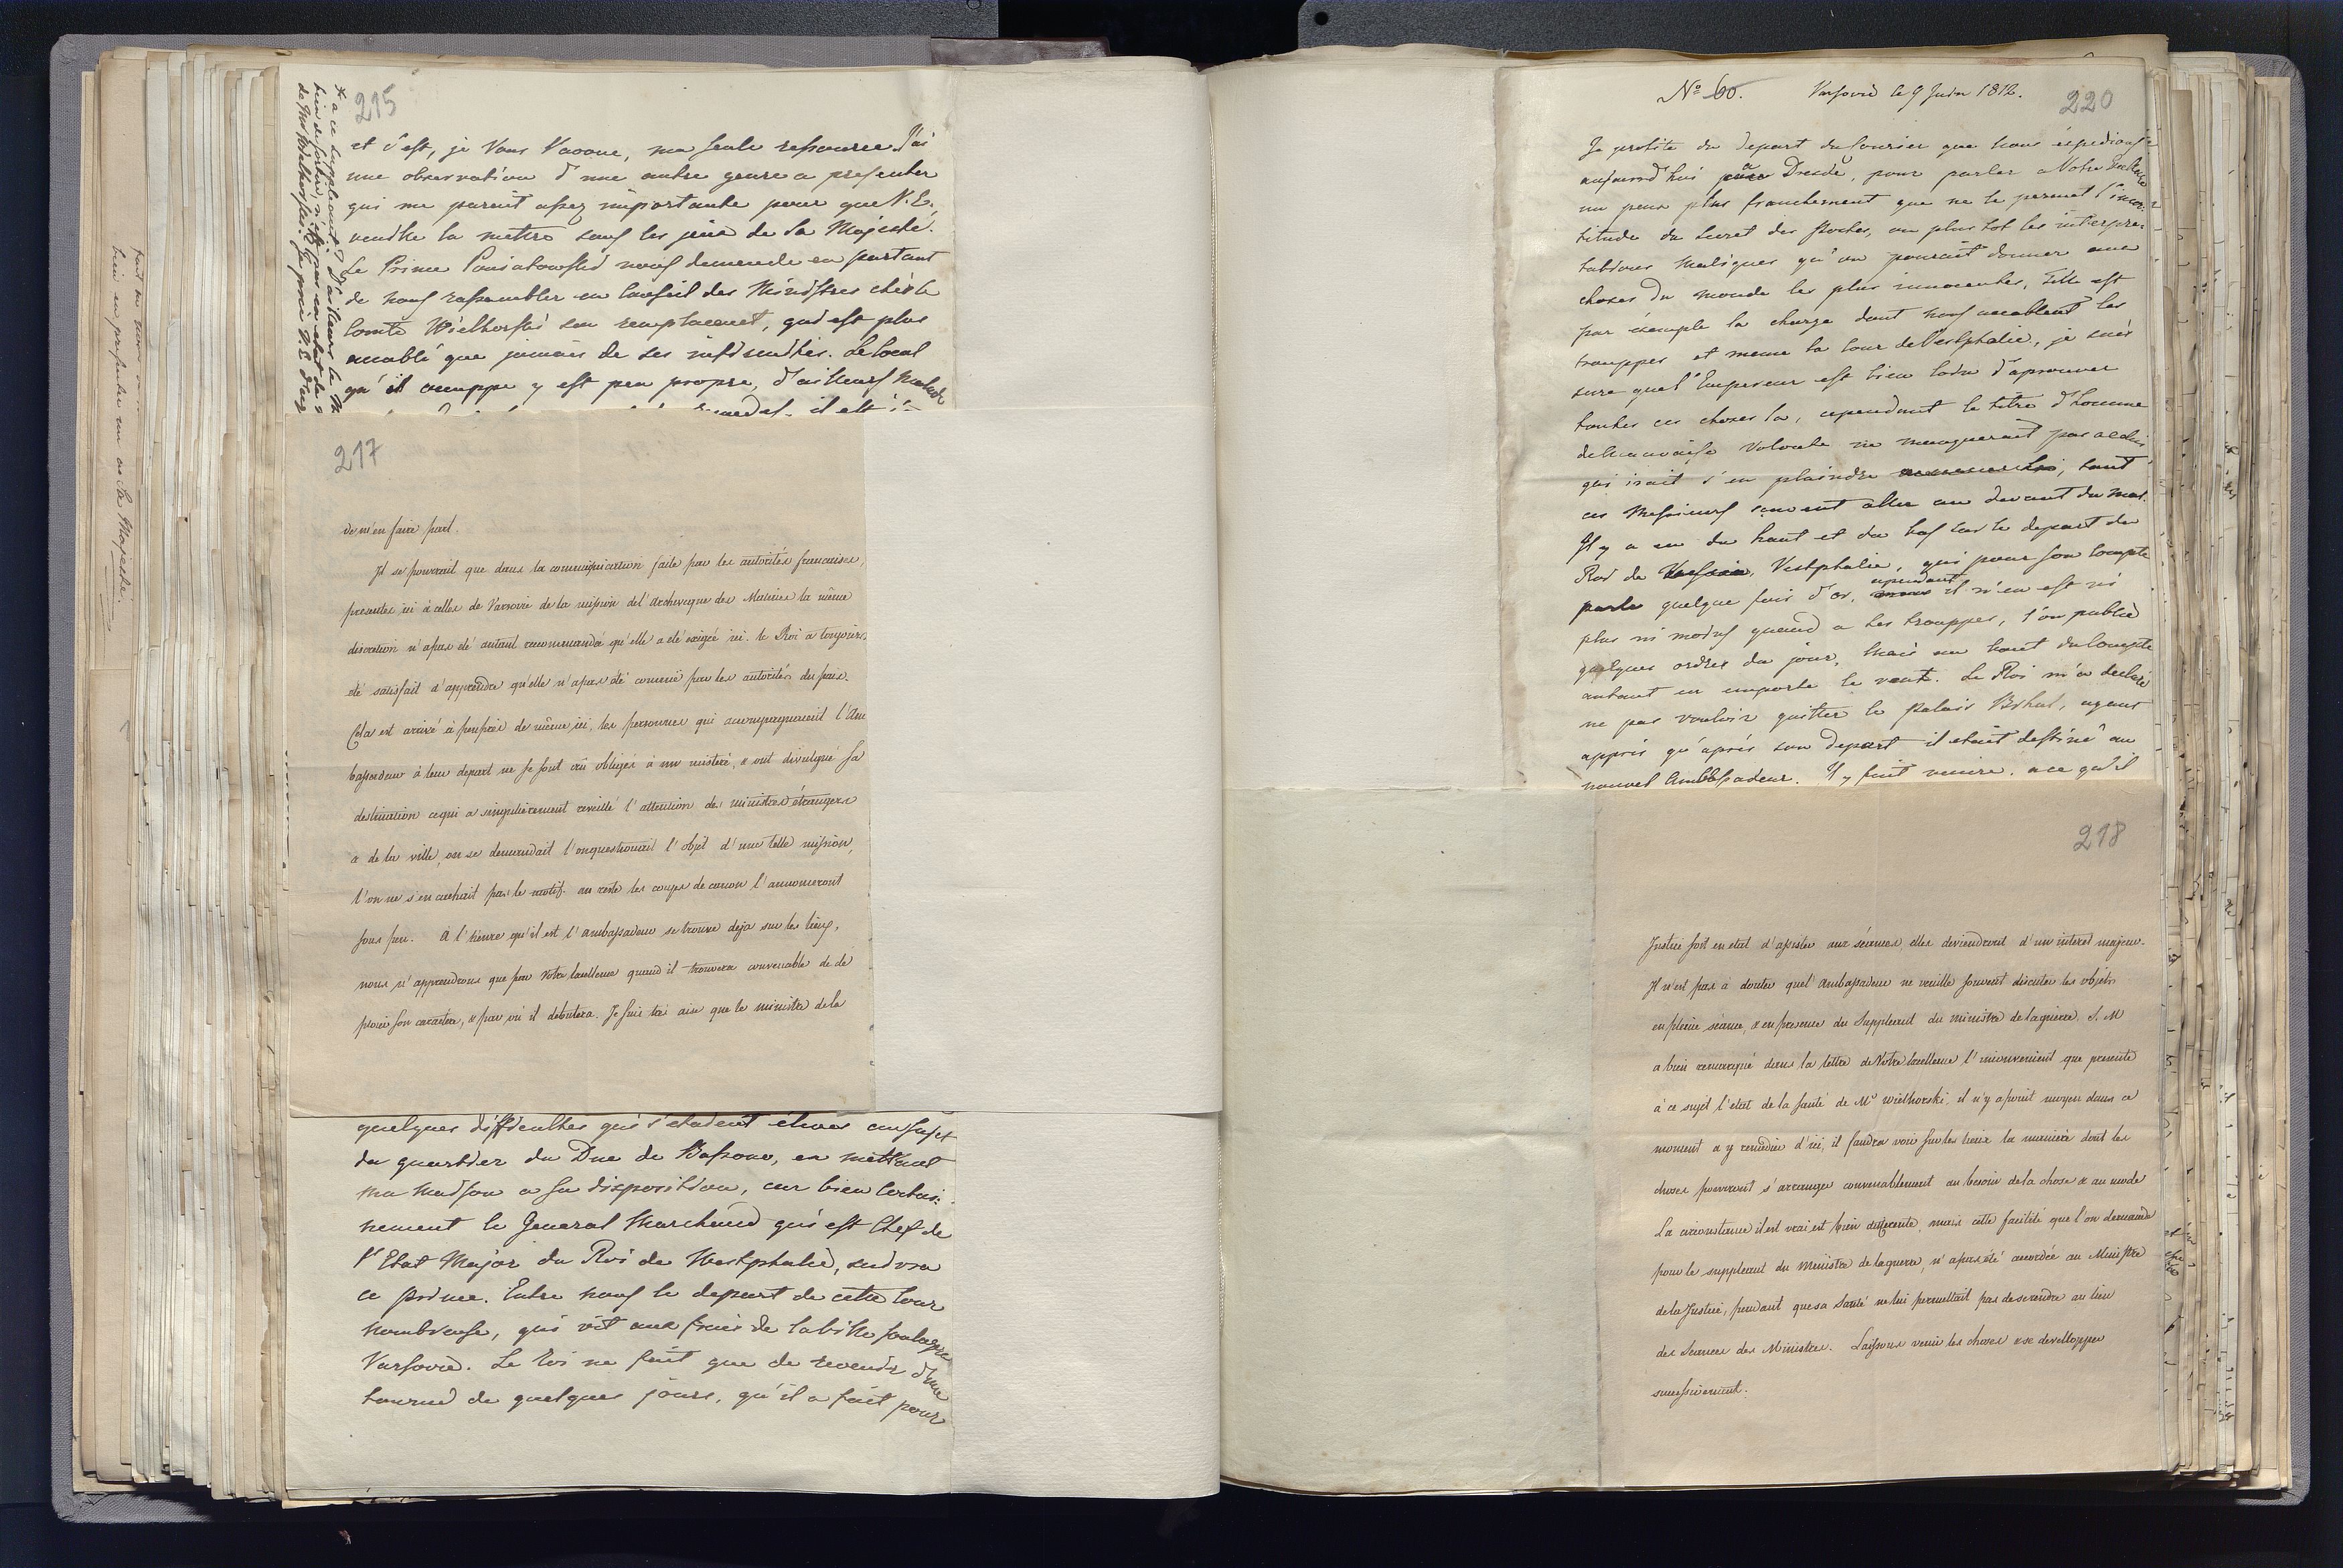 215
et c'est, je Vous l'avoue, ma seule ressource. J'ai
une observation d'une autre genre a presenter
qui me parait assez importante pour que V. E.
veuille la mettre sous les yeux de Sa Majesté.
Le Prince Poniatowski nous demande en partant
de nous rassembler en Conseil des Ministres chés le
Comte Wielhorski son remplacent, qui est plus
accablé que jamais de ses infirmités. Le local
qu'il occuppe y est peu propre, d'ailleurs
217
de m'en faire part.
Il se pourrait que dans la communication faite par les autorités francaises,
presentes ici à celles de Varsovie de la mission de l'Archeveque de Malines la même
discretion n'a pas été autant recommandée qu'elle a été exigée ici. le Roi a toujours
été satisfait d'apprendre qu'elle n'a pas été connue par les autorités du païs.
Cela est arrivé à peu près de même ici, les personnes qui accompagnaient l'Am
bassadeur à leur depart ne se sont crû obligés à un mistère, & ont divulgué sa
destination ce qui a singulièrement reveillé l'attention des ministres étrangers
& de la ville, on se demandait l'on questionnait l'objet d'une telle mission,
l'on ne s'en cachait pas le motif. au reste les coups de canon l'annonceront
sous peu. A l'heure qu'il est l'ambassadeur se trouve deja sur les lieux,
nous n'apprendrons que par Votre Excellence quand il trouvera convenable de de
ploier son caractère, & par où il debutera. Je suis très aise que le ministre de la
quelques difficultés qui s'etaient élevés au sujet
du quartier du Duc de Bassano, en mettant
ma maison a sa disposition, car bien certai-
nement le General Marchand qui est Chef de
l'Etat Major du Roi de Westphalie, suivra
ce prince. Entre nous le depart de cette Cour
nombreuse, qui vit aux frais de la ville soulagera
Varsovie. Le Roi ne fait que de revenir d'une
tournée de quelques jours, qu'il a fait pour
No 60. Varsovie le 9 Juin 1812.
220
Je profite du depart du Courier que nous expedions
aujourd'hui à Dresde, pour parler a Votre Excellence
un peu plus franchement que ne le permet l'incer-
titude du secret des Postes, ou plus tot les interpre-
tations malignes qu'on pourait donner aux
choses du monde les plus innocentes, Telle est
par exemple la charge dont nous accablent les
trouppes et meme la Cour de Vestphalie, je suis
sure que l'Empereur est bien loin d'aprouver
toutes ces choses la, cependant le titre d'homme
de mauvaise volonté ne manquerait pas a celui
qui irait s'en plaindre, tant
ces Messieurs savent aller au devant du mal.
Il y a eu du haut et du bas sur le depart du
Roi de Vestphalie, qui pour son Compte
parle quelque fois d'or, cependant il n'en est ni
plus ni moins quand a ses trouppes, l'on publie
quelques ordres du jour, mais au bout du Compte
autant en emporte le vent. Le Roi m'a declaré
ne pas vouloir quitter le Palais Brhul, ayant
appris qu'après son depart il etait destiné au
nouvel Ambassadeur. Il y fait venire, a ce qu'il
218
Justice soit en etat d'assister aux séances, elles deviendront d'un intéret majeur.
Il n'est pas à douter que l'Ambassadeur ne veuille souvent discuter les objets
en pleine séance, & en presence du Suppleant du ministre de la guerre. S. M
a bien remarqué dans la lettre de Votre Excellence l'inconvenient que presente
à ce sujet l'etat de la santé de Mr Wielhorski, il n'y a point moyen dans ce
moment a y remedier d'ici, il faudra voir sur les lieux la manière dont les
choses pourront s'arranger convenablement au besoin de la chose & au mode
La circonstance il est vrai est bien differente, mais cette facilité que l'on demande
pour le suppleant du Ministre de la guerre, n'a pas été accordée au Ministre
de la Justice, pendant que sa Santé ne lui permettait pas de se rendre au lieu
des Seances des Ministres. Laissons venir les choses & se devellopper
successivement.